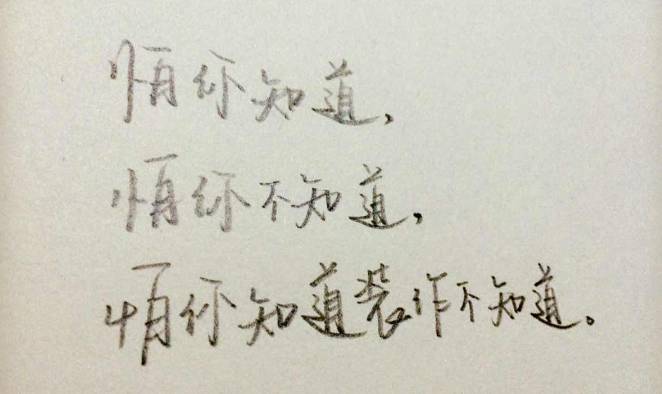 怕你知道,
怕你不知道,
怕你知道装作不知道。